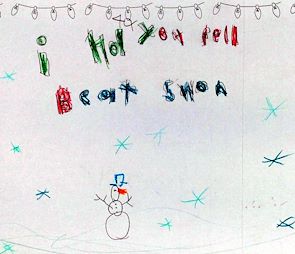 i Hol You fell
Beat swon